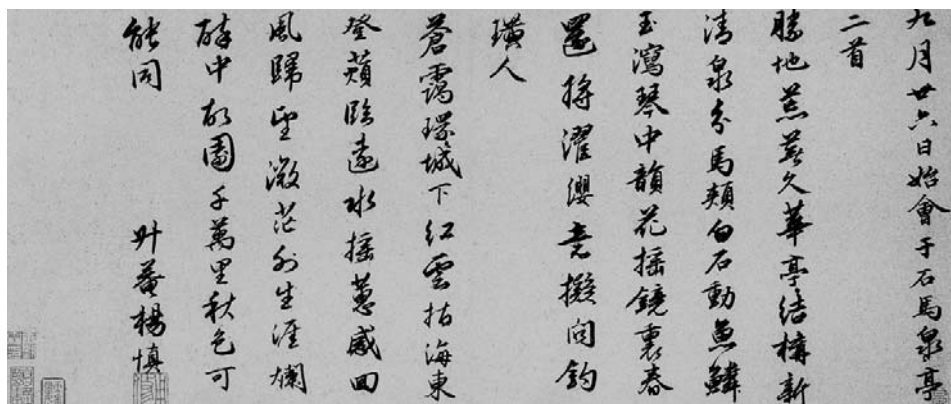 九月廿六日始會于石馬泉亭
二首
勝地荒蕪久華亭結構新
清泉分馬頰白石動魚鱗
玉瀉琴中韻花搖鏡裏春
還將濯纓意擬問釣
璜人
蒼靄環城下紅雲拈海東
登 臨遠水搖蕙感回
風歸望微茫外生涯爛
醉中故園千萬里秋色可
能同 升菴楊慎